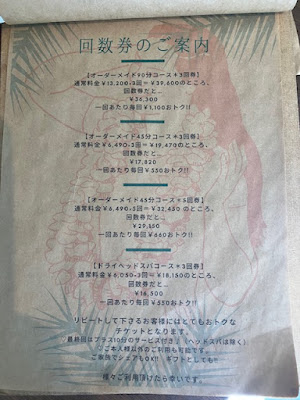 回数券のご案内
【オーダーメイド90分コース*3回券】
通常料金￥13,200×3回=￥39,600のところ、
回数券だと…
￥36,300
一回あたり毎回￥1,100おトク!!
【オーダーメイド45分コース*3回券】
通常料金￥6,490×3回=￥19,470のところ、
回数券だと…
￥17,820
一回あたり毎回￥550おトク!!
【オーダーメイド45分コース*5回券】
通常料金￥6,490×5回=￥32,450のところ、
回数券だと…
￥29,150
一回あたり毎回￥660おトク!!
【ドライヘッドスパコース*3回券】
通常料金￥6,050×3回=￥18,150のところ、
回数券だと…
￥16,500
一回あたり毎回￥550おトク!!
リピートして下さるお客様にはとてもおトクな
チケットとなります。
最終回はプラス10分のサービス付き♪（ヘッドスパは除く）
ご本人様以外のご利用も可能です。
ご家族でシェアもOK!! ギフトとしても!!
様々ご利用頂けたら幸いです。